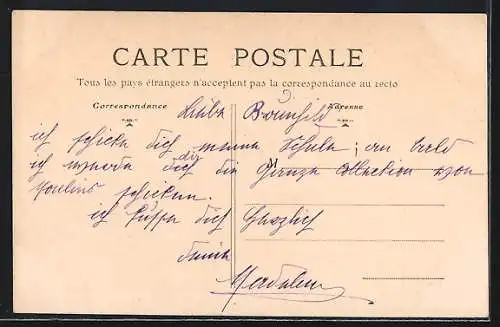 CARTE POSTALE
Tous les pays étrangers n'acceptent pas la correspondance au recto
Correspondance
Adresse
Liebe Brunhild
ich schicke dich meine Schule; au
ich werde dich die Ganze Collection von
Moulins schicken.
ich küsse dich Herzlich
deine